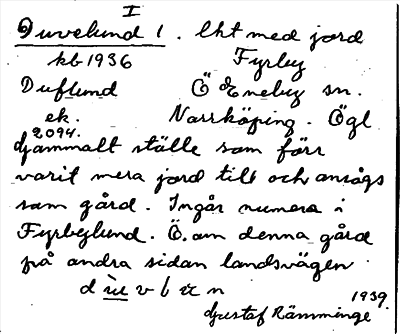 I
Duvelund 1. Lht med jord
kb 1936 Fyrby
Duflund Ö Eneby sn.
ek. Norrköping. Ögl
2094.
gammalt ställe som förr
varit mera jord till och ansågs
som gård. Ingår numera i
Fyrbylund. Ö. om denna gård
på andra sidan landsvägen
d v b n
1939.
Gustaf Rämminge